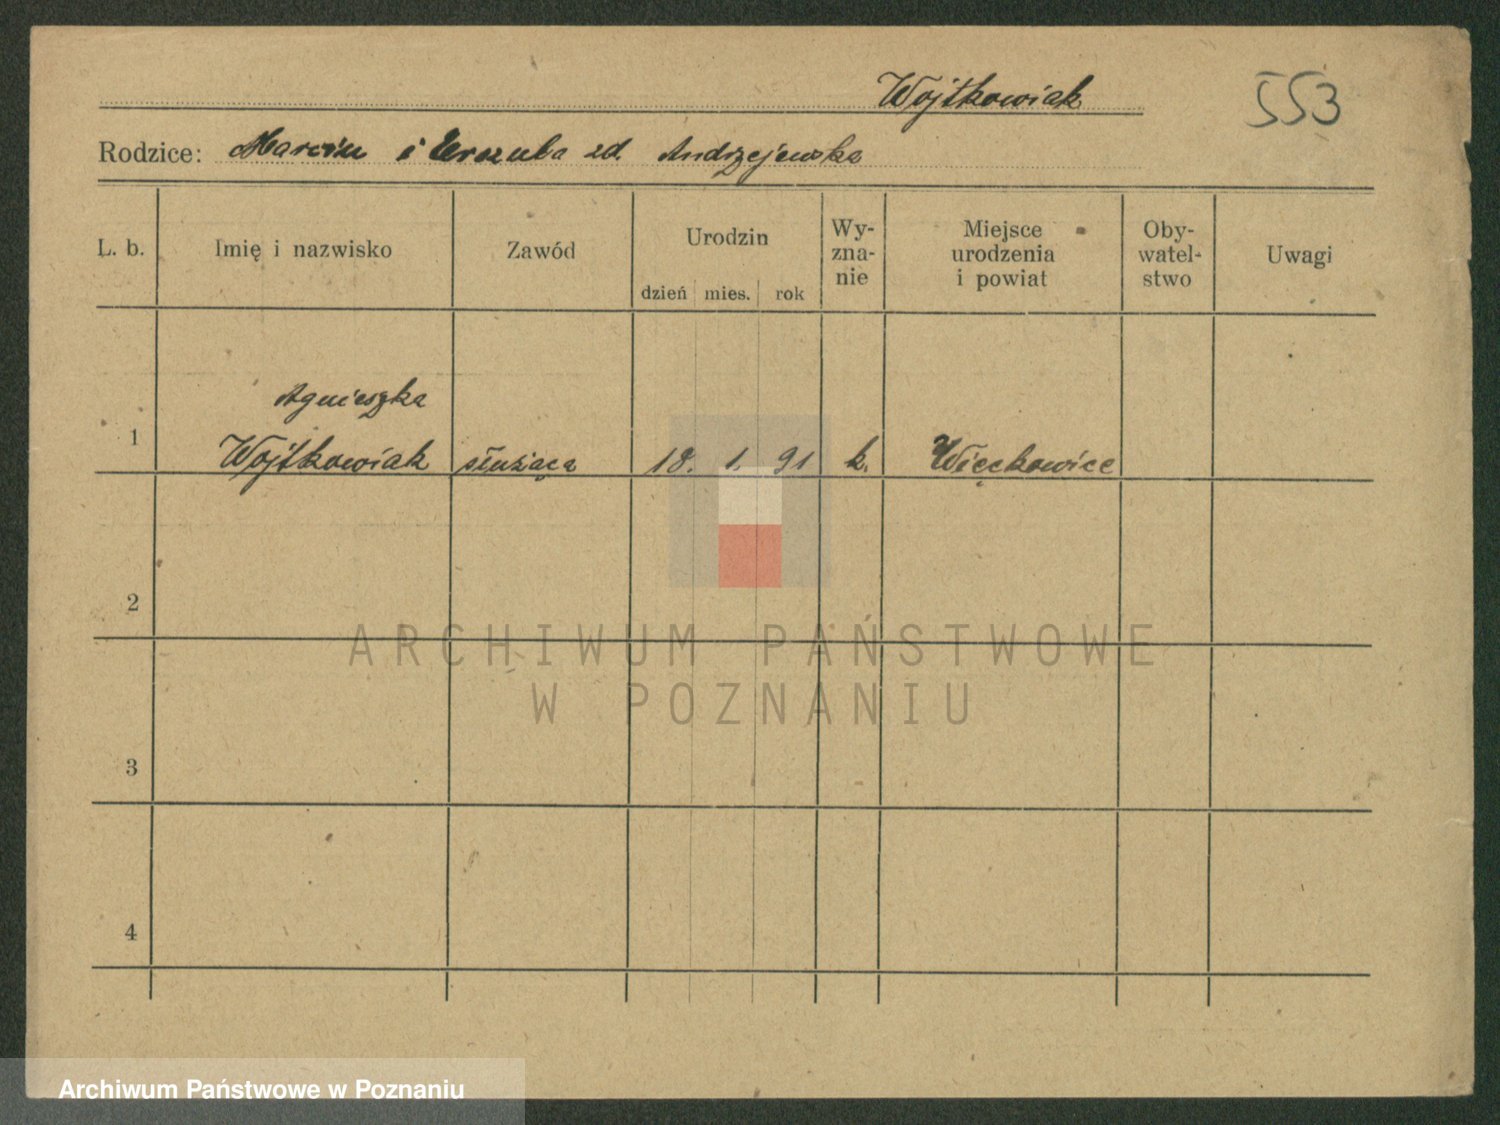 Wojtkowiak
553
Rodzice: Marcin i Urszula zd. Andrzejewska
L. b. Imię i nazwisko Zawód Urodzin dzień mies. rok Wy-zna-nie Miejsce urodzenia i powiat Oby-watel-stwo Uwagi
Agnieszka
1 Wojtkowiak służąca 18. 1. 91 k. Więckowice
2
ARCHIWUM PAŃSTWOWE
W POZNANIU
3
4
Archiwum Państwowe w Poznaniu